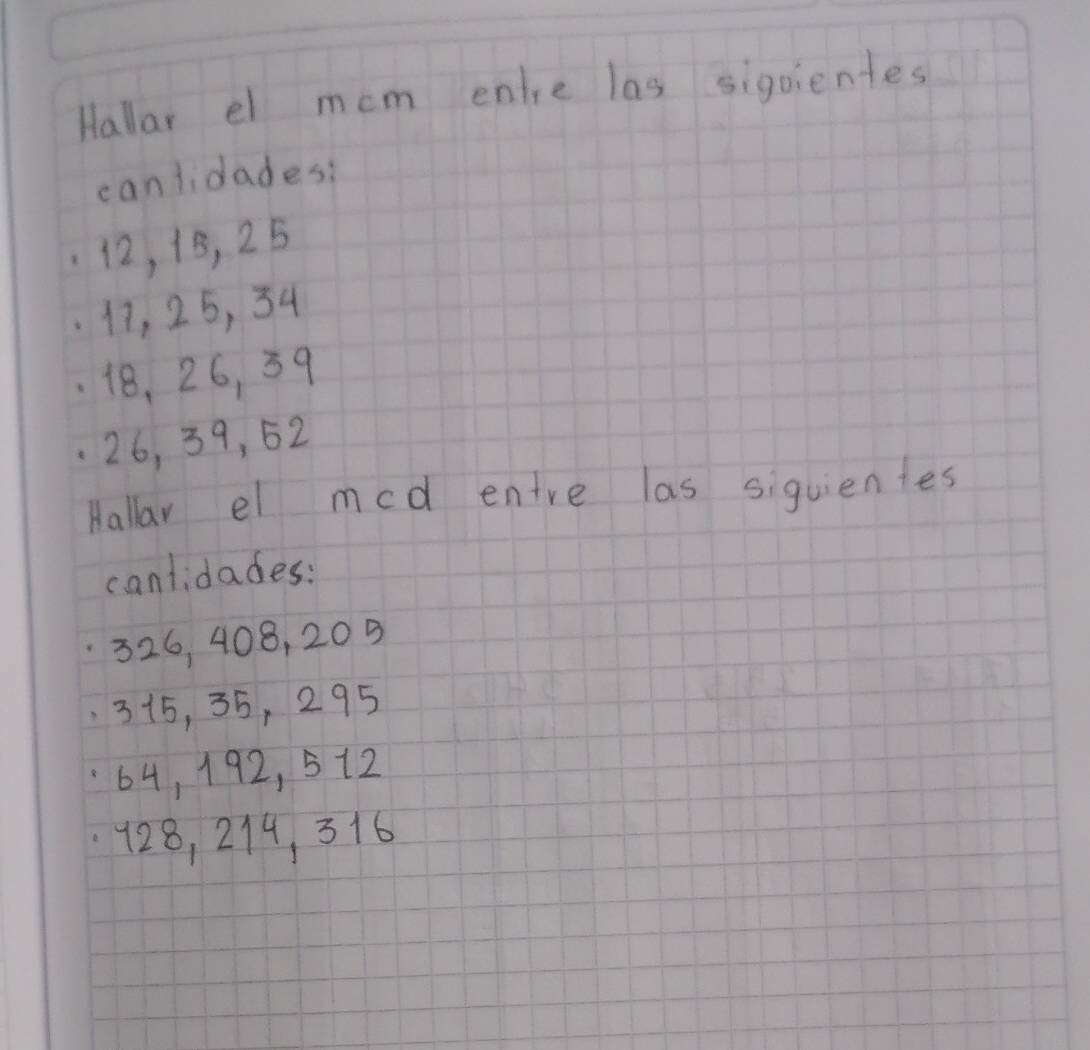 Hallar el mcm entre las siguientes
cantidades:
. 12, 15, 25
. 17, 25, 34
. 18, 26, 39
. 26, 39, 52
Hallar el mcd entre las siguientes
cantidades:
. 326, 408, 205
. 315, 35, 295
. 64, 192, 512
. 128, 214, 316